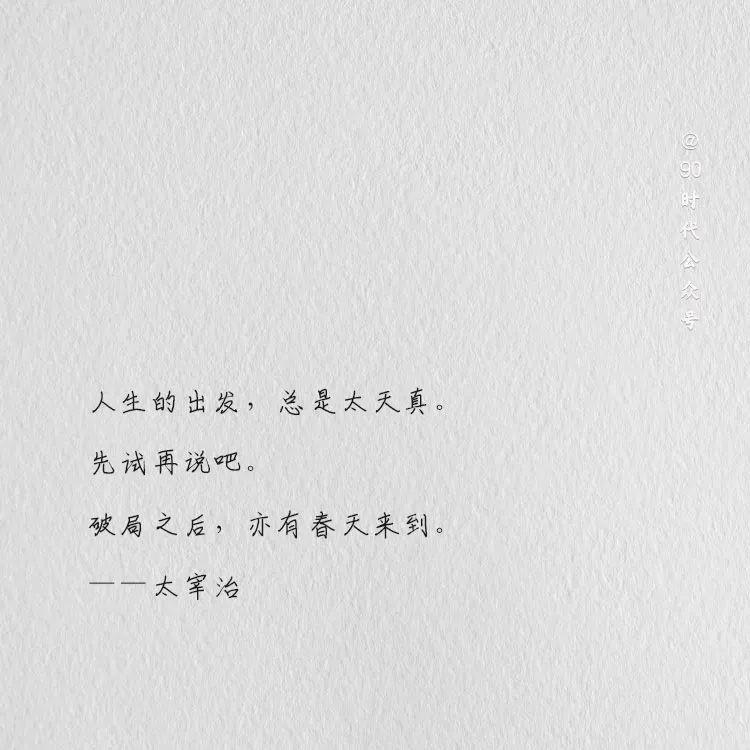 @90时代公众号
人生的出发，总是太天真。
先试再说吧。
破局之后，亦有春天来到。
——太宰治